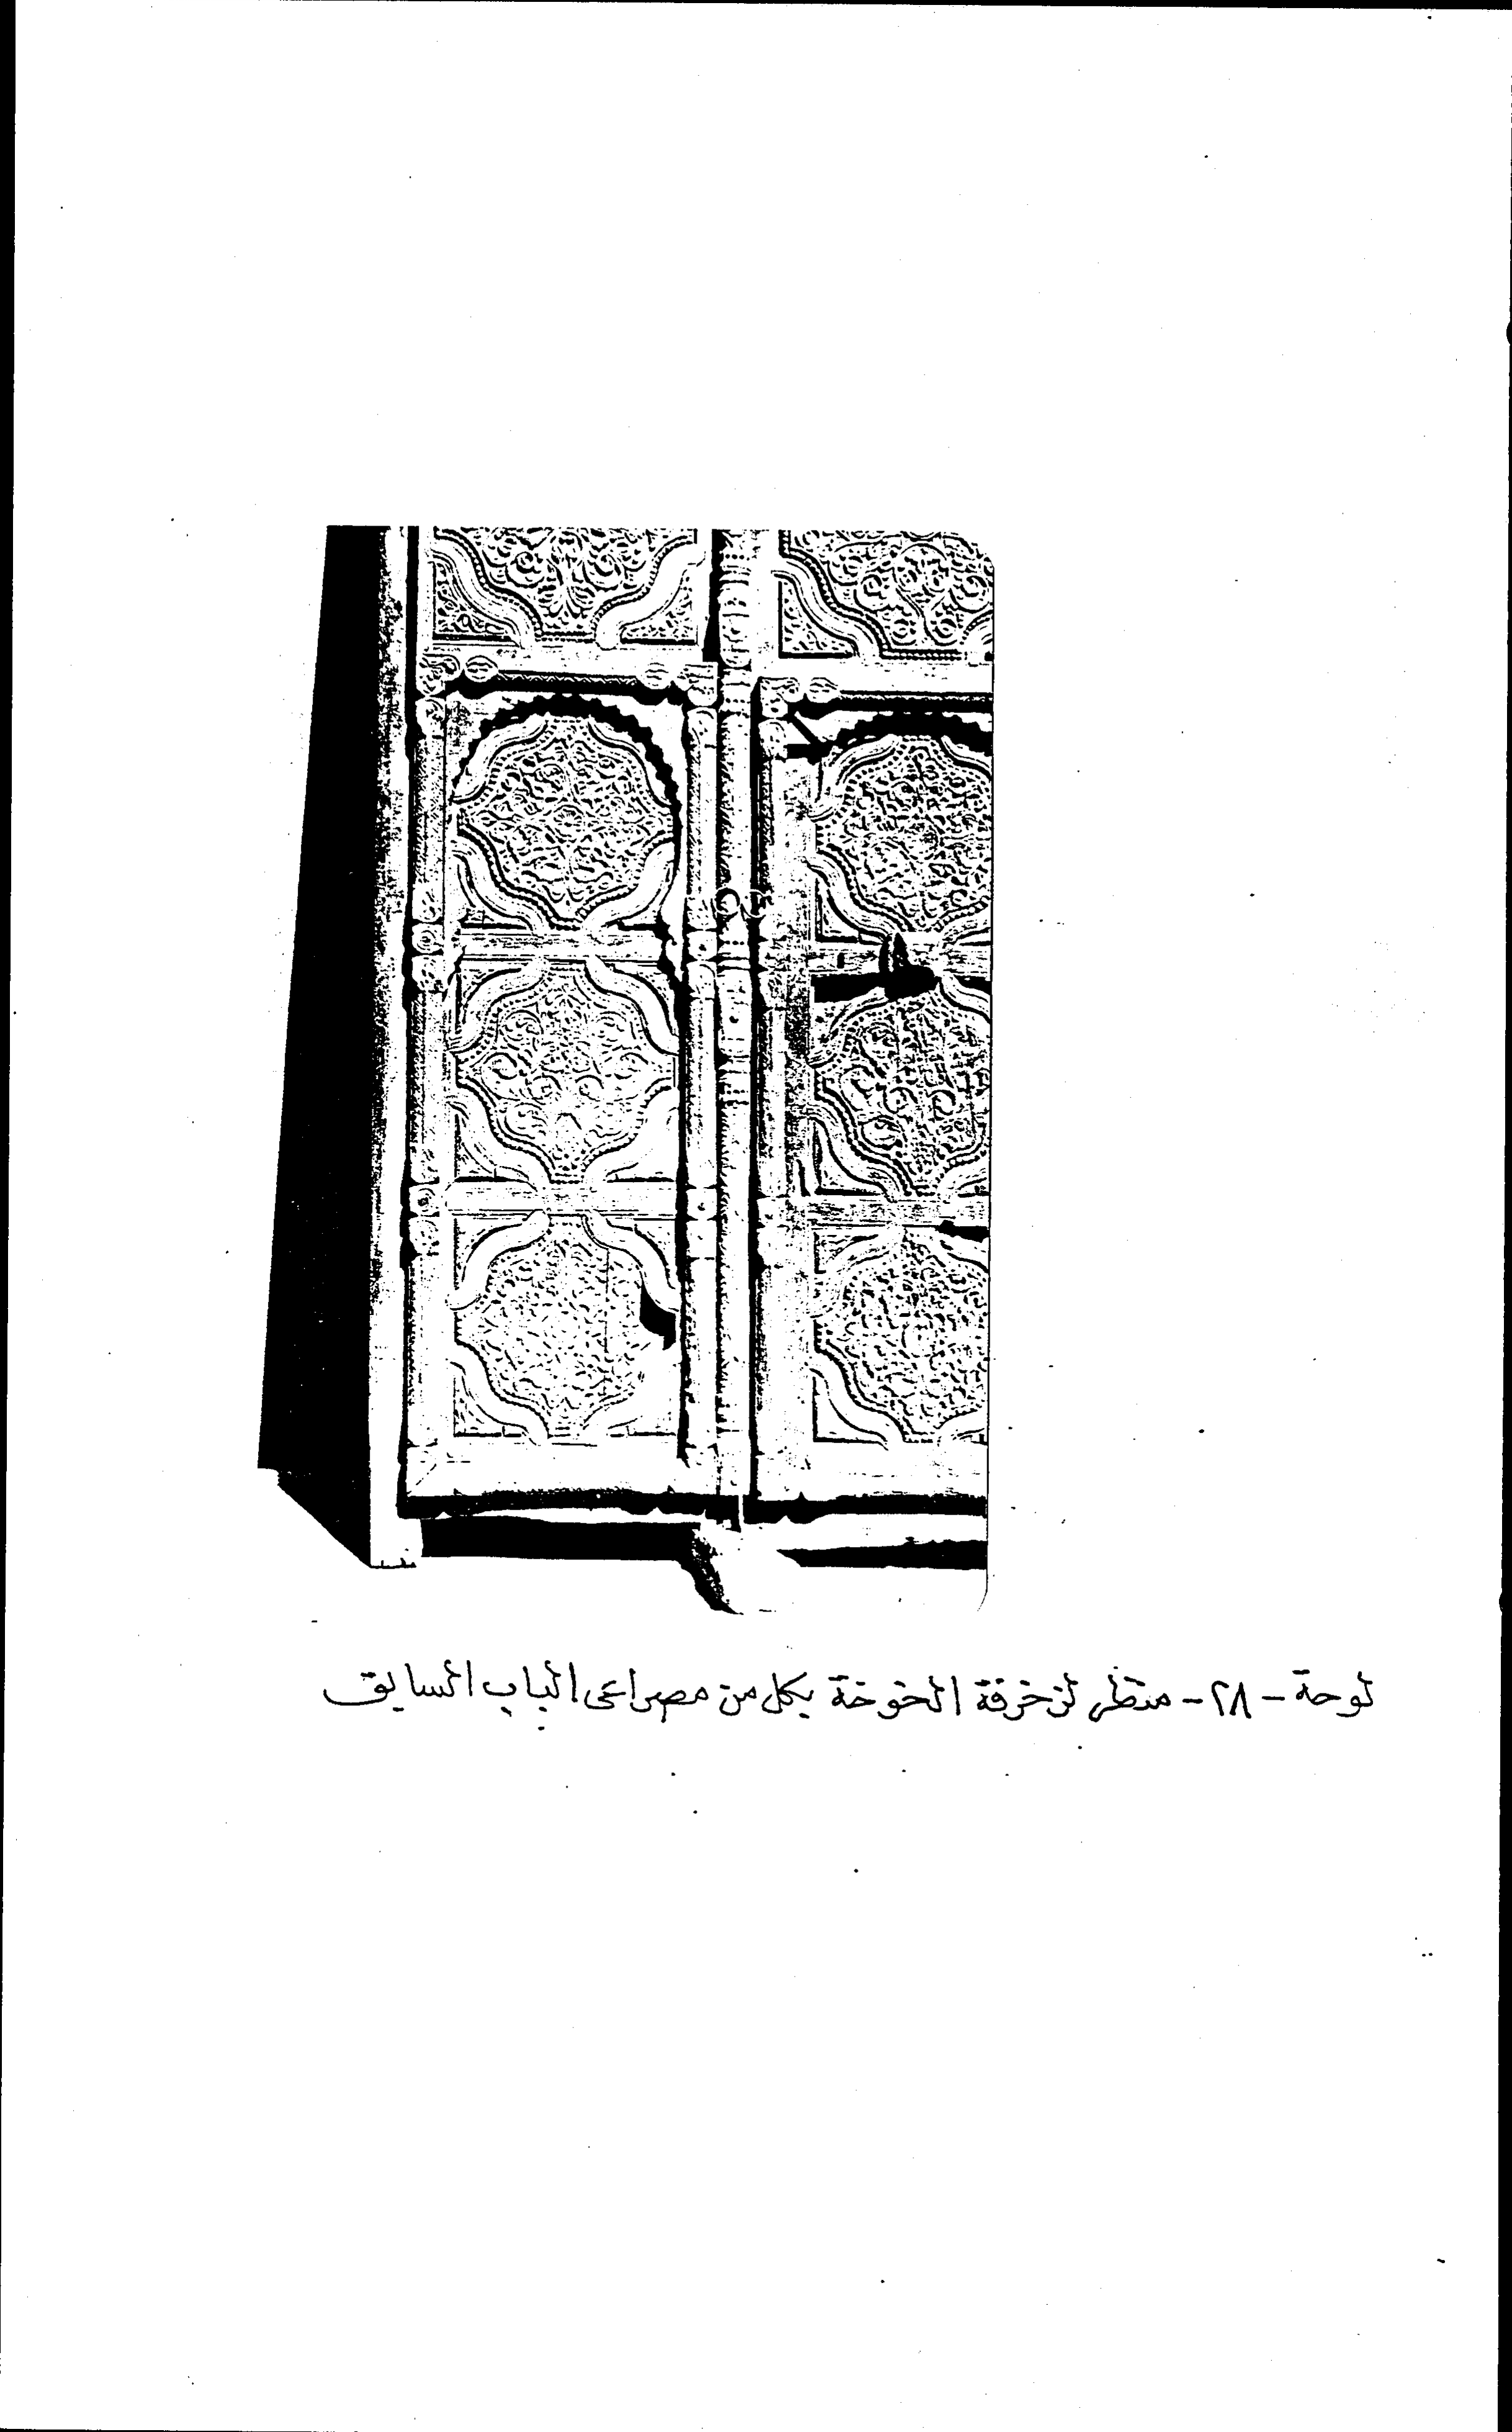 لوحة - ٢٨ - منظر لزخرفة الخوخة بكل من مصراعى الباب السابق